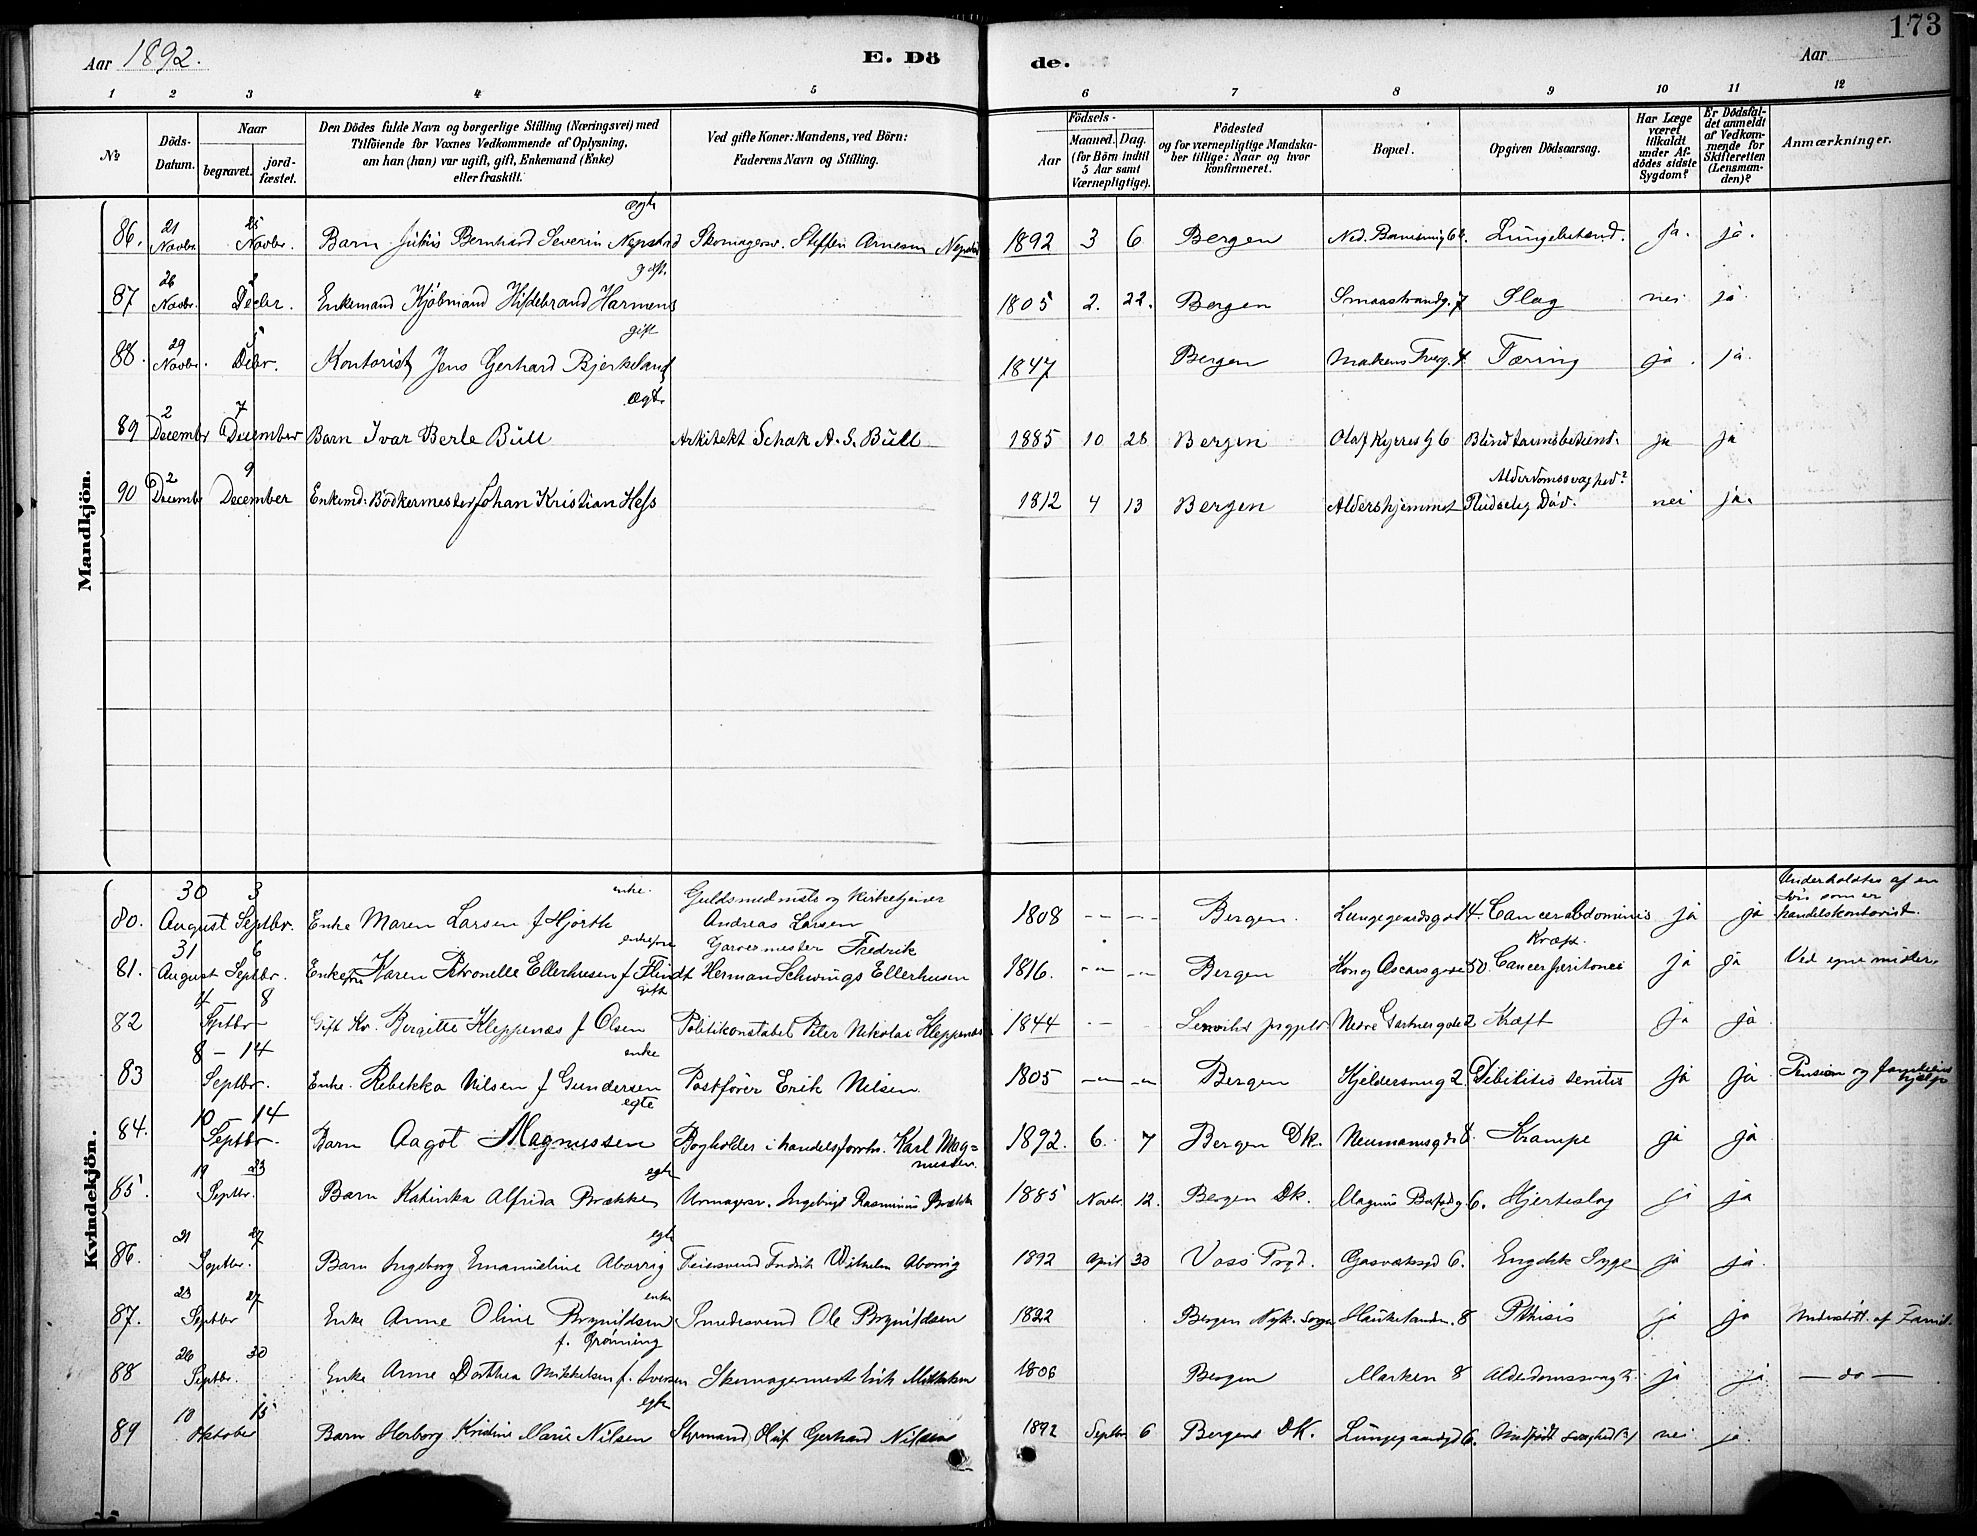 173
Aar 1892.
E. Dö
de.
Aar
1 2 3 4 5 6 7 8 9 10 11 12
No
Döds-Datum.
Naar
begravet.
jord-fæstet.
Den Dödes fulde Navn og borgerlige Stilling (Næringsvei) med
Tilföiende for Voxnes Vedkommende af Oplysning,
om han (hun) var ugift, gift, Enkemand (Enke)
eller fraskilt.
Ved gifte Koner: Mandens, ved Börn:
Faderens Navn og Stilling.
Födsels-
Aar
Maaned.
Dag.
(for Börn indtil
5 Aar samt
Værnepligtige).
Födested
og for værnepligtige Mandska-
ber tillige: Naar og hvor
konfirmeret.
Bopæl.
Opgiven Dödsaarsag.
Har Læge
været
tilkaldt
under Af-
dödes sidste
Sygdom?
Er Dödsfal-
det anmeldt
af Vedkom-
mende for
Skifteretten
(Lensman-
den)?
Anmærkninger.
Mandkjön.
ægte
86. 21 Novbr. 25 Novbr. Barn Julius Bernhard Severin Nepstad Skomagersv. Steffen Arnesen 1892 3 6 Bergen Lungebetænd. ja. ja.
gift.
87 26 Novbr. 2 Decbr. Enkemand Kjöbmand Hildebrand Harmens 1805 2. 22. Bergen Smaastrandg. 7 Slag nei ja.
gift
88. 29 Novbr. 5 Debr. Kontorist Jens Gerhard Bjerkeland 1847 Bergen Tæring ja ja.
ægte
89 2 December 7 December Barn Ivar Berle Bull Arkitekt Schak A. S. Bull 1885 10 28 Bergen Olaf Kyrresg 6 Blindtarmsbetænd. ja ja
90 2 Decembe 9 December Enkemd: Bödkermester Johan Kristian Hess 1812 4 13 Bergen Aldershjemmet Alderdomssvaghed? Pludselig Död. nei ja.
Kvindekjön.
80. 30 August 3 Septbr. Enke Maren Larsen f Hjorth enke. Guldsmedmstr og Kirketjener Andreas Larsen 1808 Bergen. Lungegaardsgad 4. Cancer abdominis ja ja Underholdtes af en som er handelskontorist.
81. 31 August 6 Septbr. Enkefru Karen Petronelle Ellerhusen f. Flindt enkefru Garvermester Fredrik Herman Schwings Ellerhusen 1816. Bergen Kong Oscarsgade 50 Kræft. Cancer peritonei ja ja Ved egne midler.
82 4 8 Septbr Gift Kv. Bergitte Kleppenæs f Olsen gift Politikonstabel Peter Nikolai Kleppenæs 1844 Nedre Gartnergade 2 Kræft ja ja
83 8 - 14 Septbr. Enke. Rebekka Nilsen f Gundersen enke Postförer Erik Nilsen 1805 Bergen Hjeldersmug 2. Debilitis senilis ja ja Pension og
84. 10 14 Septbr. Barn Aagot Magnussen egte Bogholder i handelsforrtn. Karl Mag=nussen. 1892. 6. 7 Bergen Dk. Neumannsgd 8. Krampe ja ja
85. 19 23 Septbr. Barn Katinka Alfrida Brækken egte Urmagersv. Ingebrigt Rasmus Brækken 1885 Novbr. 12. Bergen Dk. Magnus Barfodg 6. Hjerteslag ja ja
86. 21 27 Septbr. Barn Ingeborg Emanueline Aborrig egte Feiersvend Fredrik Wilhelm Aborrig 1892 April 30 Voss Prgd. Gasværksgd 6. Engelsk Syge ja ja.
87. 23 27 Septbr Enke Anne Oline Brynildsen f. Grönning enke Smedesvend Ole Brynildsen 1822 Bergen Nyk. Sogn Haukelandsv. 8 Pthisis ja ja Understött. af Famil.
88 26 30 Septbr. Enke Anne Dorthea Mikkelsen f. Iversen Skomagermestr Erik Mikkelsen 1806 Bergen Marken 8 Alderdomssvagh. ja ja — do —
89 10 15 Oktober Barn Herborg Kristine Marie Nilsen egte Styrmand Oluf Gerhard Nilsen 1892 Septbr 6 Bergens DK. Lungegaardsgd 6. Medfödt Svaghed nei ja.